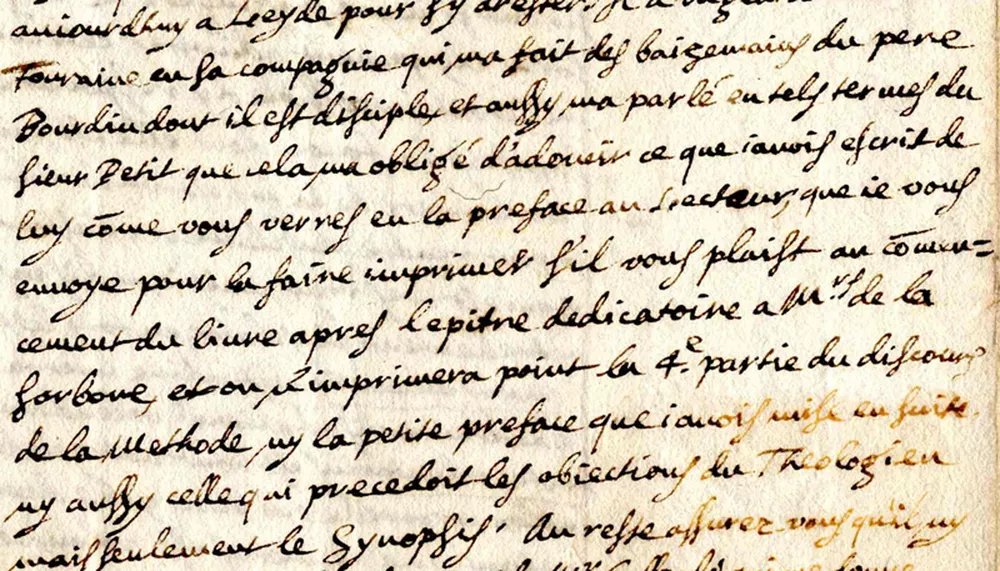 auiourdhuy a Leyde pour sy arester
Touraine en sa compagnie qui ma fait des baizemains du pere
Bourdin dont il est disciple, et aussy ma parlé en tels termes du
sieur Petit que cela ma obligé d'adoucir ce que iauois escrit de
luy come vous verres en la preface au Lecteur, que ie vous
enuoye pour la faire imprimer s'il vous plaist au comen=
cement du liure apres lepitre dedicatoire a Mrs de la
sorbone, et on n'imprimera point la 4e partie du discours
de la Methode ny la petite preface que iauois mise en suite,
ny aussy celle qui precedoit les obiections du Theologien
mais seulement le Synopsis. Au reste assurez vous qu'il ny